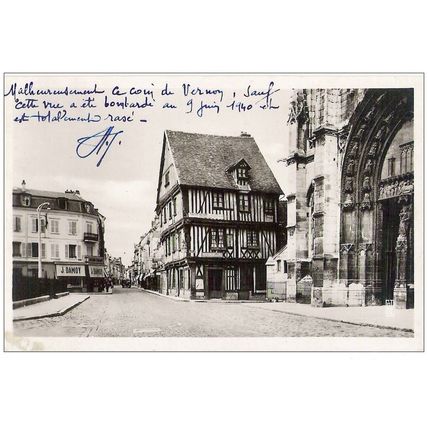 Malheureusement ce coin de Vernon, sauf
cette vue a été bombardé au 9 juin 1940 et
est totalement rasé -
J. DAMOY